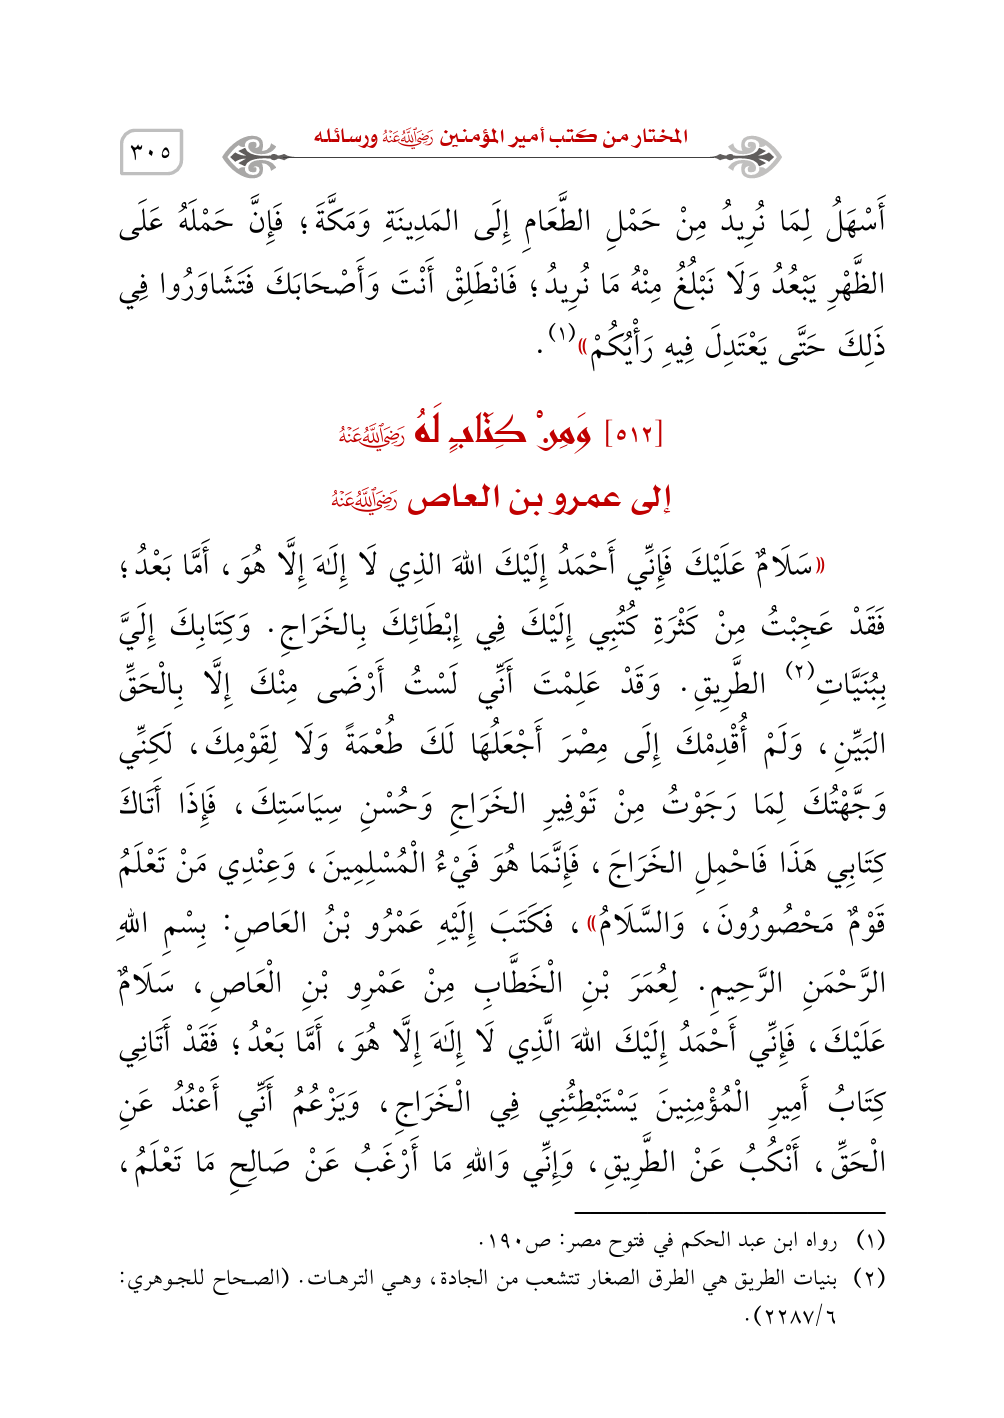 المختار من كتب أمير المؤمنين رَضِيَ اللَّهُ عَنْهُ ورسائله
٣٠٥
أَسْهَلُ لِمَا نُرِيدُ مِنْ حَمْلِ الطَّعَامِ إِلَى المَدِينَةِ وَمَكَّةَ؛ فَإِنَّ حَمْلَهُ عَلَى
الظَّهْرِ يَبْعُدُ وَلَا نَبْلُغُ مِنْهُ مَا نُرِيدُ؛ فَانْطَلِقْ أَنْتَ وَأَصْحَابَكَ فَتَشَاوَرُوا فِي
ذَلِكَ حَتَّى يَعْتَدِلَ فِيهِ رَأْيُكُمْ»(١).
[٥١٢] وَمِنْ كِتَابٍ لَهُ رَضِيَ اللَّهُ عَنْهُ
إلى عمرو بن العاص رَضِيَ اللَّهُ عَنْهُ
«سَلَامٌ عَلَيْكَ فَإِنِّي أَحْمَدُ إِلَيْكَ اللهَ الذِي لَا إِلَهَ إِلَّا هُوَ، أَمَّا بَعْدُ؛
فَقَدْ عَجِبْتُ مِنْ كَثْرَةِ كُتُبِي إِلَيْكَ فِي إِبْطَائِكَ بِالخَرَاجِ. وَكِتَابِكَ إِلَيَّ
بِبُنَيَّاتِ(٢) الطَّرِيقِ. وَقَدْ عَلِمْتَ أَنِّي لَسْتُ أَرْضَى مِنْكَ إِلَّا بِالْحَقِّ
البَيِّنِ، وَلَمْ أُقْدِمْكَ إِلَى مِصْرَ أَجْعَلُهَا لَكَ طُعْمَةً وَلَا لِقَوْمِكَ، لَكِنِّي
وَجَّهْتُكَ لِمَا رَجَوْتُ مِنْ تَوْفِيرِ الخَرَاجِ وَحُسْنِ سِيَاسَتِكَ، فَإِذَا أَتَاكَ
كِتَابِي هَذَا فَاحْمِلِ الخَرَاجَ، فَإِنَّمَا هُوَ فَيْءُ الْمُسْلِمِينَ، وَعِنْدِي مَنْ تَعْلَمُ
قَوْمٌ مَحْصُورُونَ، وَالسَّلَامُ»، فَكَتَبَ إِلَيْهِ عَمْرُو بْنُ العَاصِ: بِسْمِ اللهِ
الرَّحْمَنِ الرَّحِيمِ. لِعُمَرَ بْنِ الْخَطَّابِ مِنْ عَمْرِو بْنِ الْعَاصِ، سَلَامٌ
عَلَيْكَ، فَإِنِّي أَحْمَدُ إِلَيْكَ اللهَ الَّذِي لَا إِلَهَ إِلَّا هُوَ، أَمَّا بَعْدُ؛ فَقَدْ أَتَانِي
كِتَابُ أَمِيرِ الْمُؤْمِنِينَ يَسْتَبْطِئُنِي فِي الْخَرَاجِ، وَيَزْعُمُ أَنِّي أَعْنُدُ عَنِ
الْحَقِّ، أَنْكُبُ عَنْ الطَّرِيقِ، وَإِنِّي وَاللهِ مَا أَرْغَبُ عَنْ صَالِحِ مَا تَعْلَمُ،
(١) رواه ابن عبد الحكم في فتوح مصر: ص١٩٠.
(٢) بنيات الطريق هي الطرق الصغار تتشعب من الجادة، وهي الترهات. (الصحاح للجوهري:
٢٢٨٧/٦).